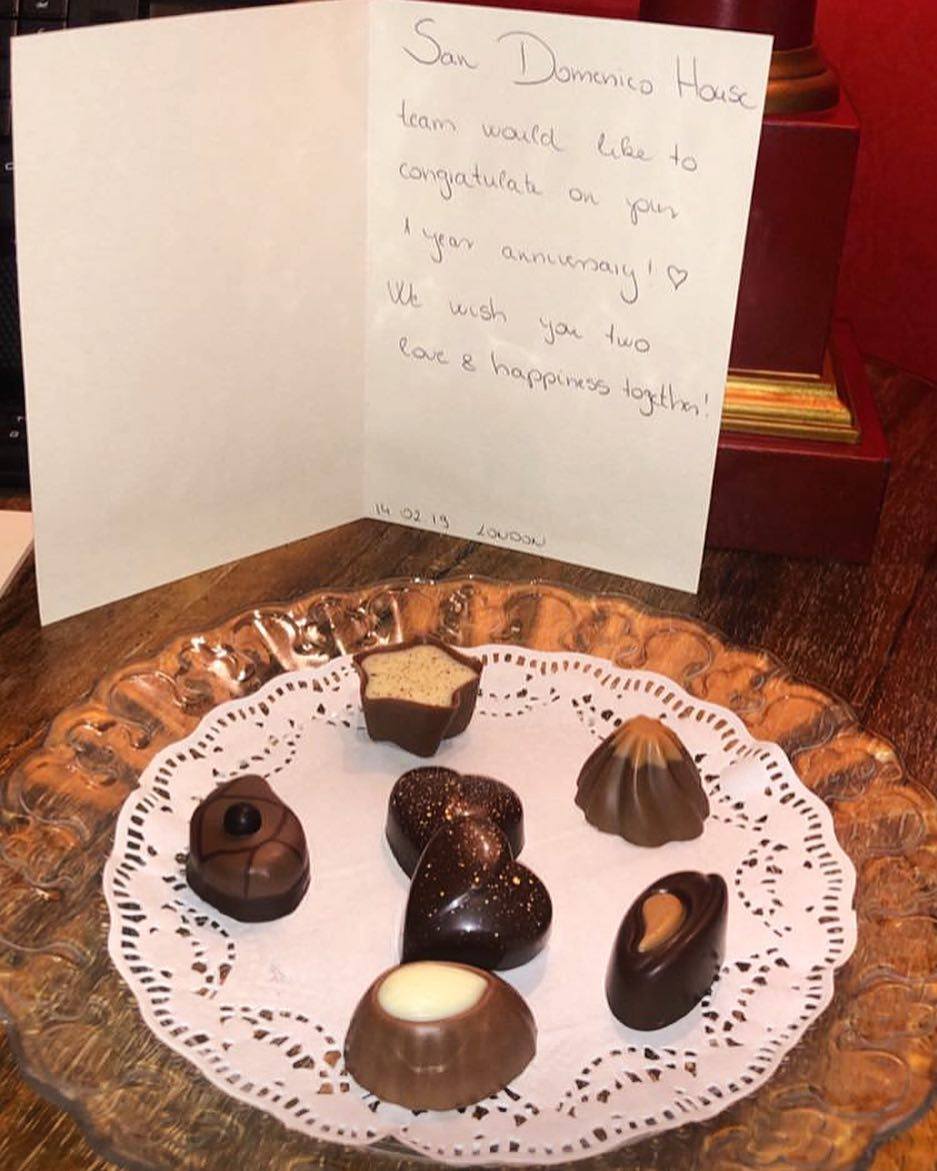 San Domenico House
team would like to
congratulate on your
1 year anniversary! ♡
We wish you two
love & happiness together!
14.02.19 LONDON